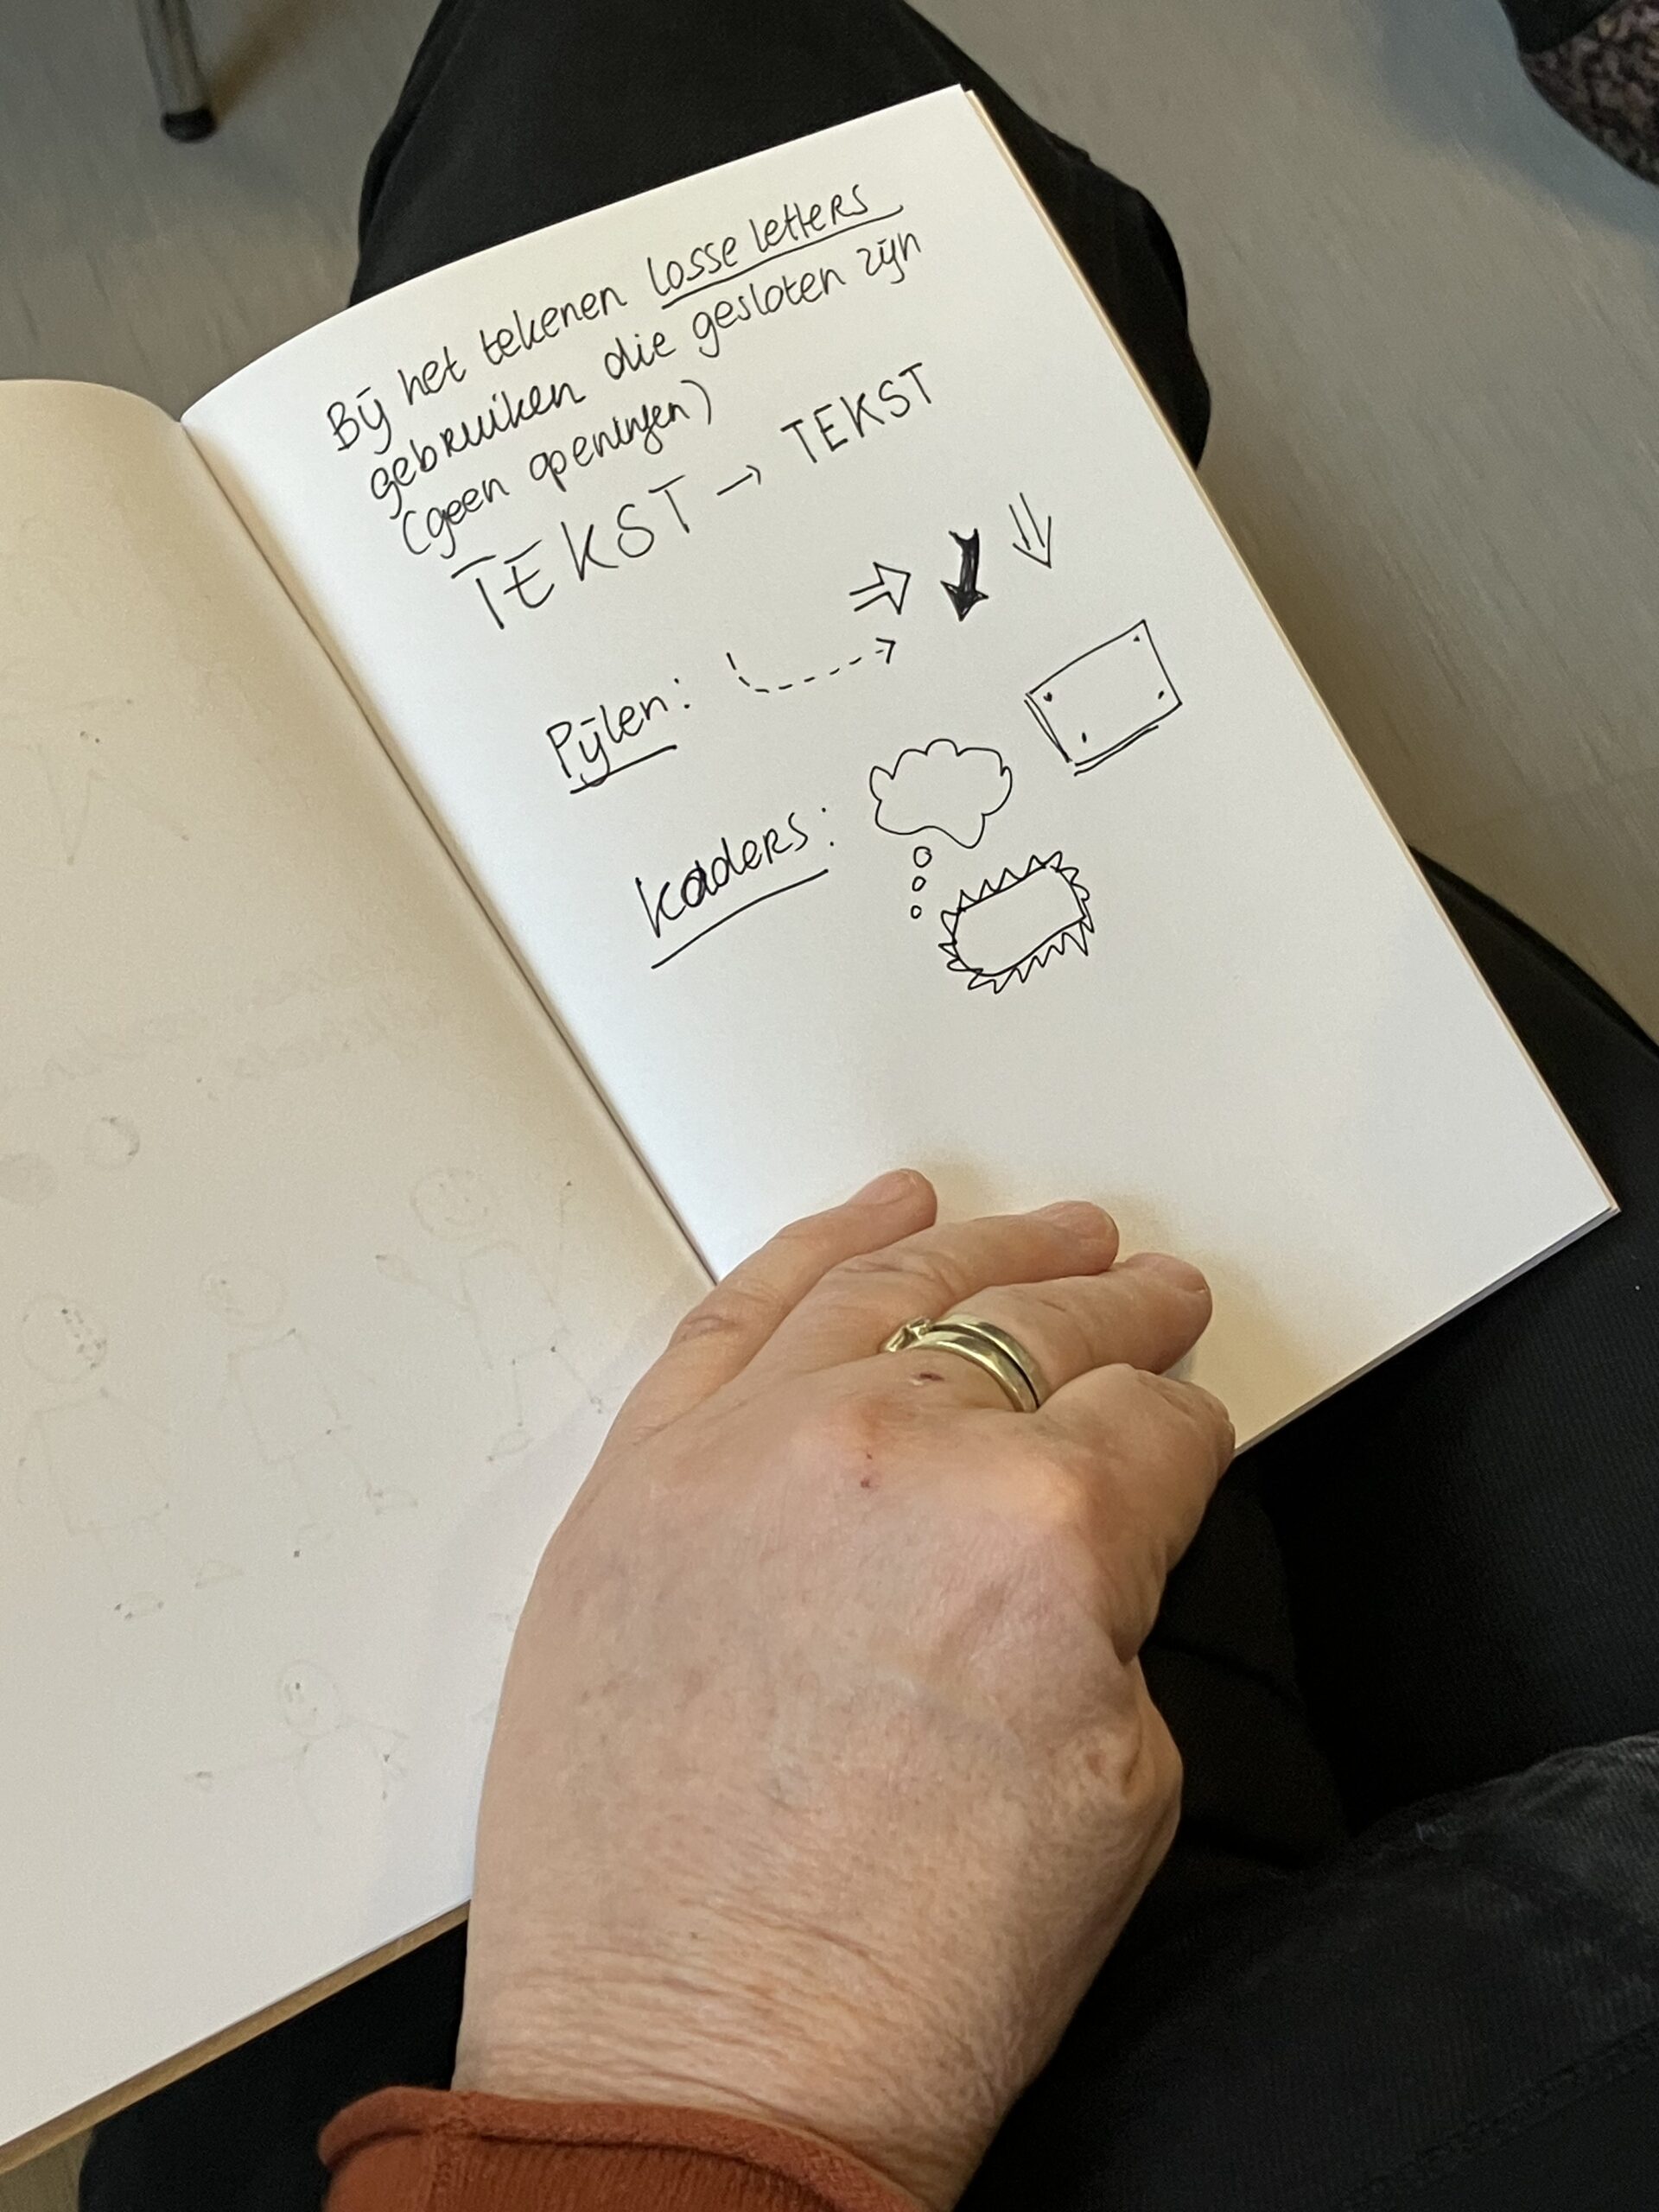 Bij het tekenen losse letters
gebruiken die gesloten zijn
(geen openingen)
TEKST → TEKST
Pijlen:
kaders: